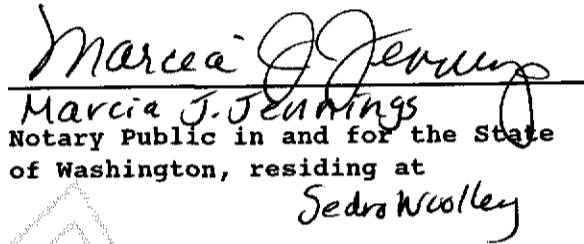 Marcia J. Jennings
Marcia J. Jennings
Notary Public in and for the State
of Washington, residing at
Sedro Woolley